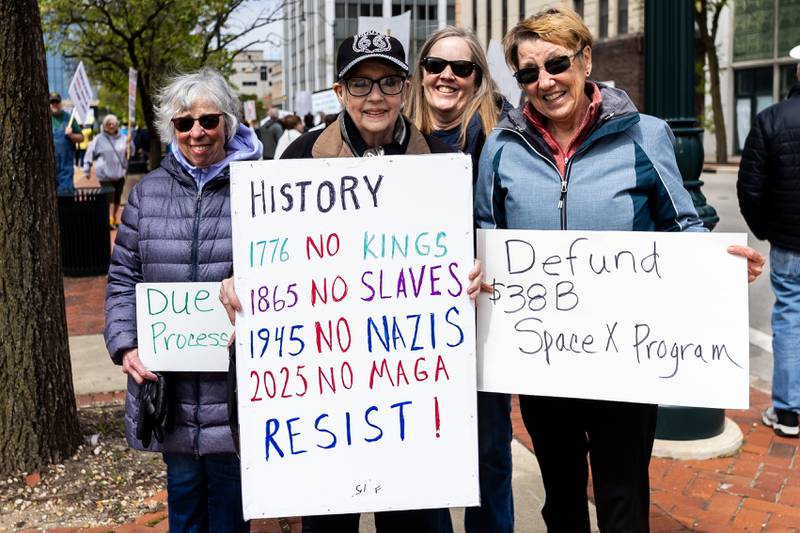 HISTORY
1776 NO KINGS
1865 NO SLAVES
1945 NO NAZIS
2025 NO MAGA
RESIST!
Due
Process
Defund
$38B
Space X Program